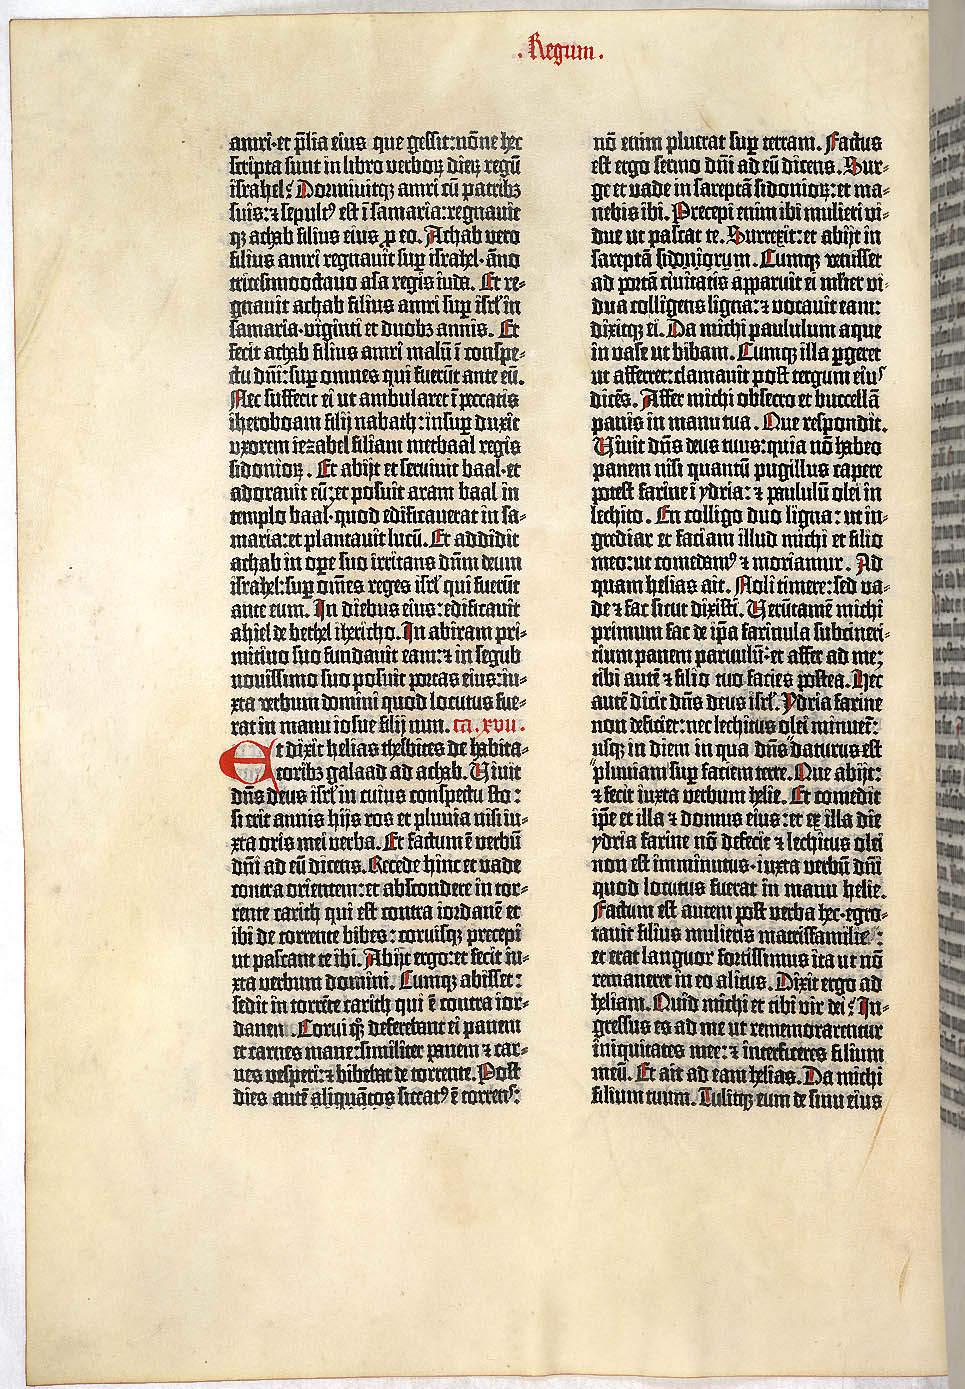 . Regum .
amri·et p̄lia eius que gessit:nōne hec
scripta sunt in libro verboꝝ dieꝝ regū
israhel? Dormiuitqꝫ amri cū patribꝫ
suis:⁊ sepultꝰ est ī samaria:regnauit
qꝫ achab filius eius ꝓ eo. Achab vero
filius amri regnauit suꝑ israhel·āno
tricesimooctauo asa regis iuda. Et re-
gnauit achab filius amri suꝑ isrl̄ in
samaria·viginti et duobꝫ annis. Et
fecit achab filius amri malū ī conspe-
ctu dn̄i:suꝑ omnes qui fuerūt ante eū.
Nec suffecit ei ut ambularet ī peccatis
iheroboam filij nabath:insuꝑ duxit
vxorem iezabel filiam methaal regis
sidonioꝝ. Et abijt et seruiuit baal·et
adorauit eū:et posuit aram baal in
templo baal·quod edificauerat in sa-
maria:et plantauit lucū. Et addidit
achab in oꝑe suo irritans dn̄m deum
israhel:suꝑ om̄es reges isrl̄ qui fuerūt
ante eum. In diebus eius:edificauit
ahiel de bethel ihericho. In abiram pri-
mitiuo suo fundauit eam:⁊ in segub
nouissimo suo posuit portas eius:iu-
xta verbum domini quod locutus fue-
rat in manu iosue filij nun. ca. xvii.
Et dixit helias thesbites de habita-
toribꝫ galaad ad achab. Viuit
dn̄s deus isrl̄ in cuius conspectu sto:
si erit annis hijs ros et pluuia nisi iu-
xta oris mei verba. Et factum ē verbū
dn̄i ad eū dicens. Recede hinc et vade
contra orientem:et abscondere in tor-
rente carith qui est contra iordanē et
ibi de torrente bibes:coruisqꝫ precepi
ut pascant te ibi. Abijt ergo:et fecit iu-
xta verbum domini. Cumqꝫ abisset:
sedit in torrēte carith qui ē contra ior-
danen. Corui qꝫ deferebant ei panem
et carnes mane:similiter panem ⁊ car-
nes vesperi:⁊ bibebat de torrente. Post
dies autē aliquātos siccatꝰ ē torrēs:
nō enim pluerat suꝑ terram. Factus
est ergo sermo dn̄i ad eū dicens. Sur-
ge et vade in sareptā sidonioꝝ:et ma-
nebis ibi. Precepi enim ibi mulieri vi-
due ut pascat te. Surrexit:et abijt in
sareptā sidoniorum. Cumqꝫ venisset
ad portā ciuitatis apparuit ei mlīer vi-
dua colligens ligna:⁊ vocauit eam:
dixitqꝫ ei. Da michi paululum aque
in vase ut bibam. Cumqꝫ illa ꝑgeret
ut afferret:clamauit post tergum eiꝰ
dicēs. Affer michi obsecro et buccellā
panis in manu tua. Que respondit.
Viuit dn̄s deus tuus:quia nō habeo
panem nisi quantū pugillus capere
potest farine ī ydria:⁊ paululū olei in
lechito. En colligo duo ligna:ut in-
grediar et faciam illud michi et filio
meo:ut comedamꝰ ⁊ moriamur. Ad
quam helias ait. Noli timere:sed va-
de ⁊ fac sicut dixisti. Verūtamē michi
primum fac de ip̄a farinula subcineri-
cium panem paruulū·et affer ad me;
tibi autē ⁊ filio tuo facies postea. Hec
autē dicit dn̄s deus isrl̄. Ydria farine
non deficiet:nec lechitus olei minuet̄:
usqꝫ in diem in qua dn̄s daturus est
pluuiam suꝑ faciem terre. Que abijt:
⁊ fecit iuxta verbum helie. Et comedit
ip̄e et illa ⁊ domus eius:et ex illa die
ydria farine nō defecit ⁊ lechitus olei
non est imminutus·iuxta verbū dn̄i
quod locutus fuerat in manu helie.
Factum est autem post verba hec·egro-
tauit filius mulieris matrisfamilie:
et erat languor fortissimus ita ut nō
remaneret in eo alitus. Dixit ergo ad
heliam. Quid michi et tibi vir dei? In-
gressus es ad me ut rememorarentur
iniquitates mee:⁊ interficeres filium
meū. Et ait ad eam helias. Da michi
filium tuum. Tulitqꝫ eum de sinu eius